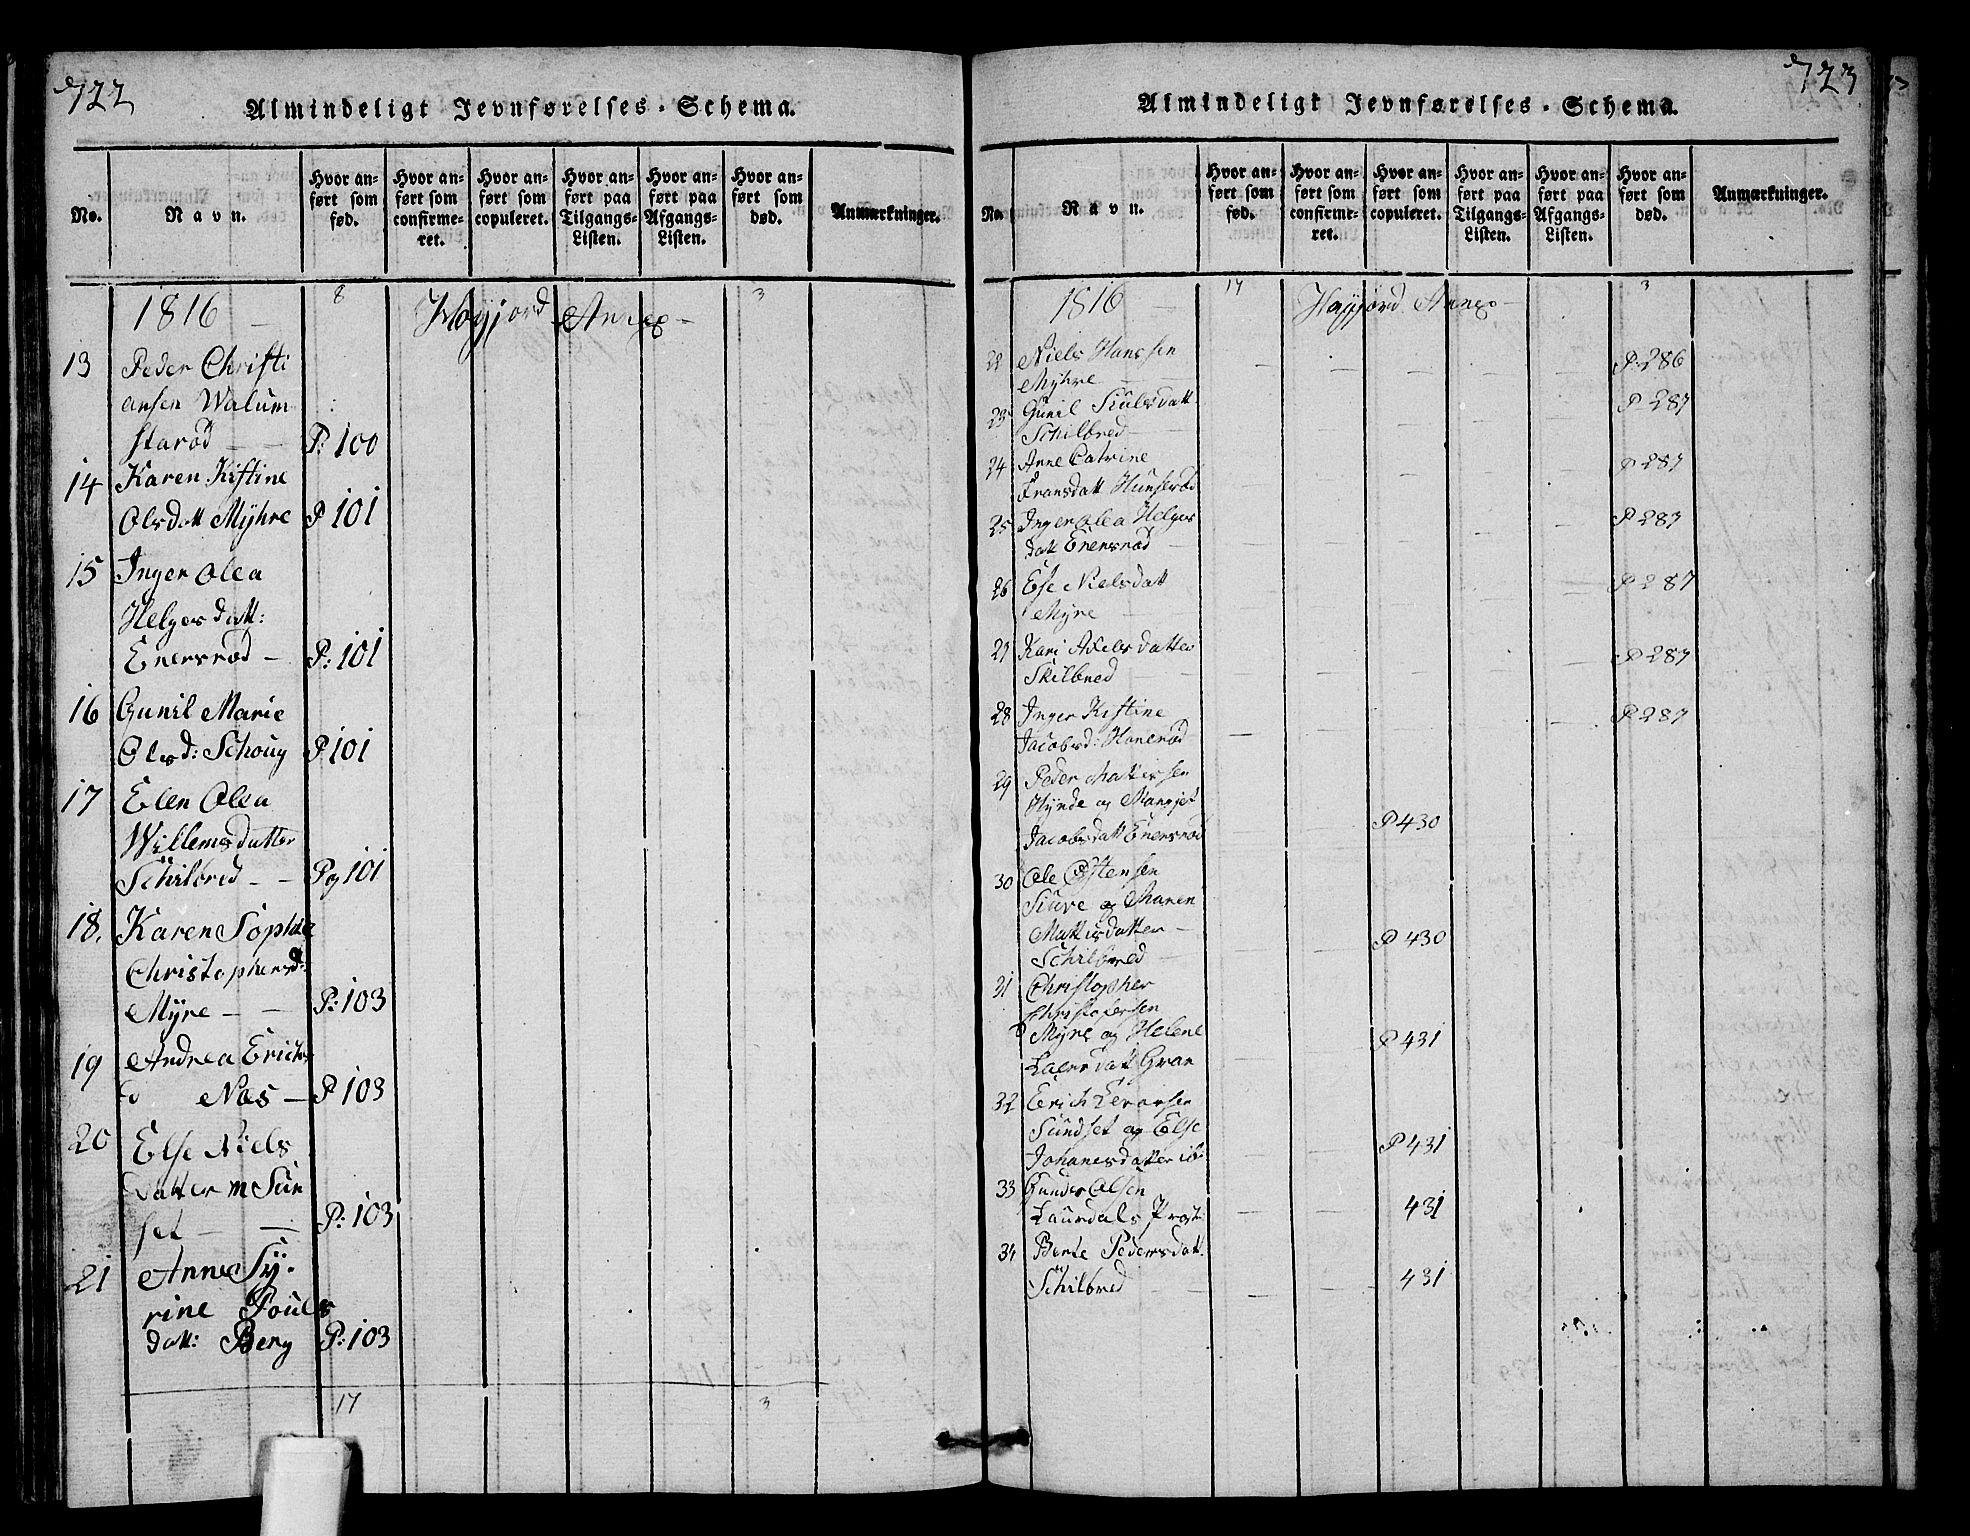 722
Almindeligt Jevnførelses-Schema.
No.
Navn.
Hvor anført som fød.
Hvor anført som confirmeret.
Hvor anført som copuleret.
Hvor anført paa Tilgangs-Listen.
Hvor anført paa Afgangs-Listen.
Hvor anført som død.
Anmærkninger.
1816 8 Høyjord Annex 3
13 Peder Christi
ansen Walum
starød P: 100
14 Karen Kistine
Olsdatt Mÿhre P 101
15 Inger Olea
Helgesdatt:
Enersrød P: 101
16 Gunil Marie
Olsd: Schoug P 101
17 Elen Olea
Willemsdatter
Schilbred Pg 101
18. Karen Sophie
Christophersd:
Mÿre P: 103
19 Andrea Erichs
d Næs P 103
20 Else Niels
datter m Sun
set P: 103
21 Anne Sÿ-
rine Pouls
datt: Berg P: 103
17 3
723
Almindeligt Jevnførelses-Schema.
No.
Navn.
Hvor anført som fød.
Hvor anført som confirmeret.
Hvor anført som copuleret.
Hvor anført paa Tilgangs-Listen.
Hvor anført paa Afgangs-Listen.
Hvor anført som død.
Anmærkninger.
1816 17 Høyjord Annex 3
22 Niels Hanssen P: 286
Mÿhre
23 Gunil Siulsdatt P 287
Schilbred
24 Anne Catrine P 287
Fransdatt Hunserød
25 Inger Olea Helges P 287
datt Enersrød
26 Else Nielsdatt P 287
Mÿre
27 Kari Axelsdatter P 287
Skilbred
28 Inger Kistine P 287
Jacobsd: Hanerød
29 Peder Mattissen
Hÿnde og Margjet
Jacobsdatt Enersrød P 430
30 Ole Ostensen
Siuve og Maren
Mattisdatter P 430
Schilbred
31 Christopher
Christofersen
Mÿre og Helene P 431
Laersdatt Gran
32 Erich Iversen
Sundset og Else
Johanesdatter ib: P 431
33 Gunder Olsen
Laurdals Prgt 431
34 Berte Pedersdatt.
Schilbred 431